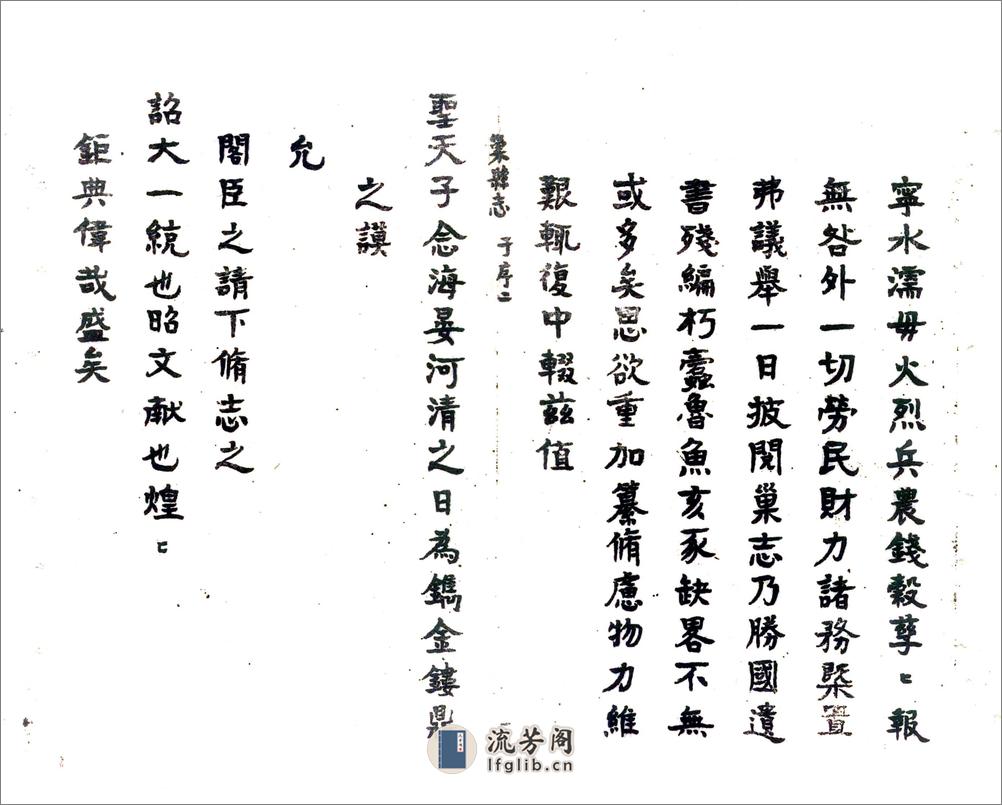 寧水濡毋火烈兵農錢穀孳〻報
無咎外一切勞民財力諸務槩置
弗議舉一日披閱巢志乃勝國遺
書殘編朽蠹魯魚亥豕缺畧不無
或多矣思欲重加纂脩慮物力維
艱輒復中輟茲值
巢縣志 于序二
聖天子念海晏河清之日為鐫金鏤鼎
之謨
允
閣臣之請下脩志之
詔大一統也昭文献也煌〻
鉅典偉哉盛矣
流芳阁
lfglib.cn